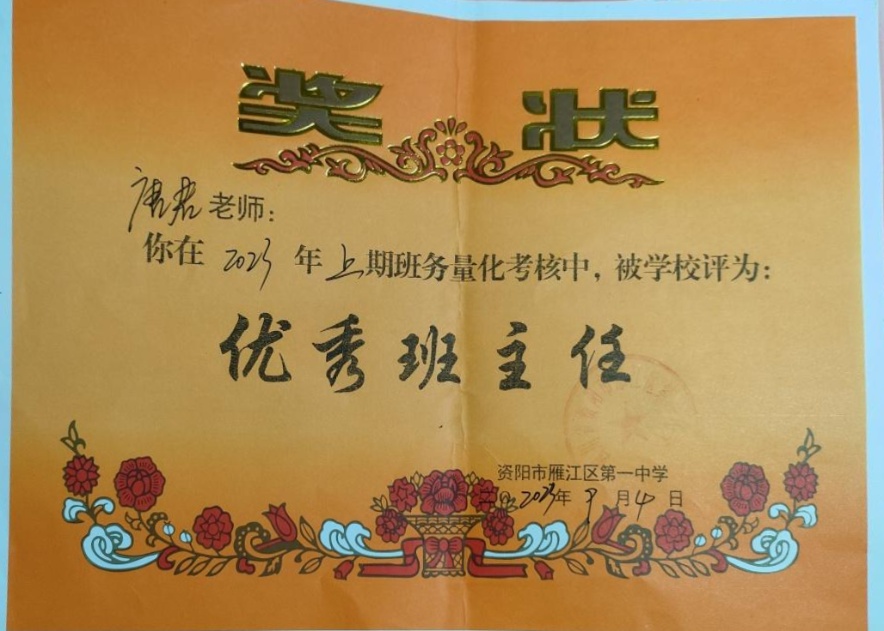 奖状
唐君老师：
你在 2023 年上期班务量化考核中，被学校评为：
优秀班主任
资阳市雁江区第一中学
2023年9月4日